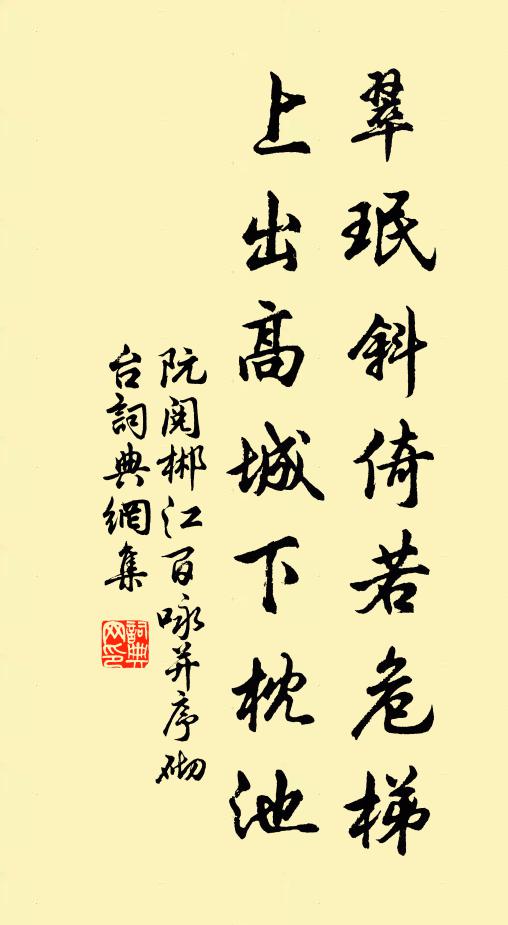 翠珉斜倚若危梯
上出高城下枕池
阮閱郴江百咏并序砌
台詞典網集
詞典
网印